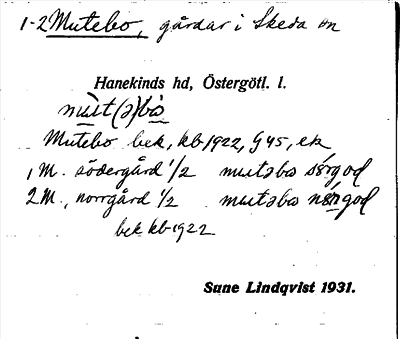 1-2 Mutebo, gårdar i Skeda sn
Hanekinds hd, Östergötl. l.
mùt(ə)bò
Mutebo bek, kb 1922, G 45, ek
1 M. södergård 1/2 mutəbo sǿrgoḍ
2 M., norrgård 1/2 mutəbo nǿrgoḍ
bek kb 1922
Sune Lindqvist 1931.